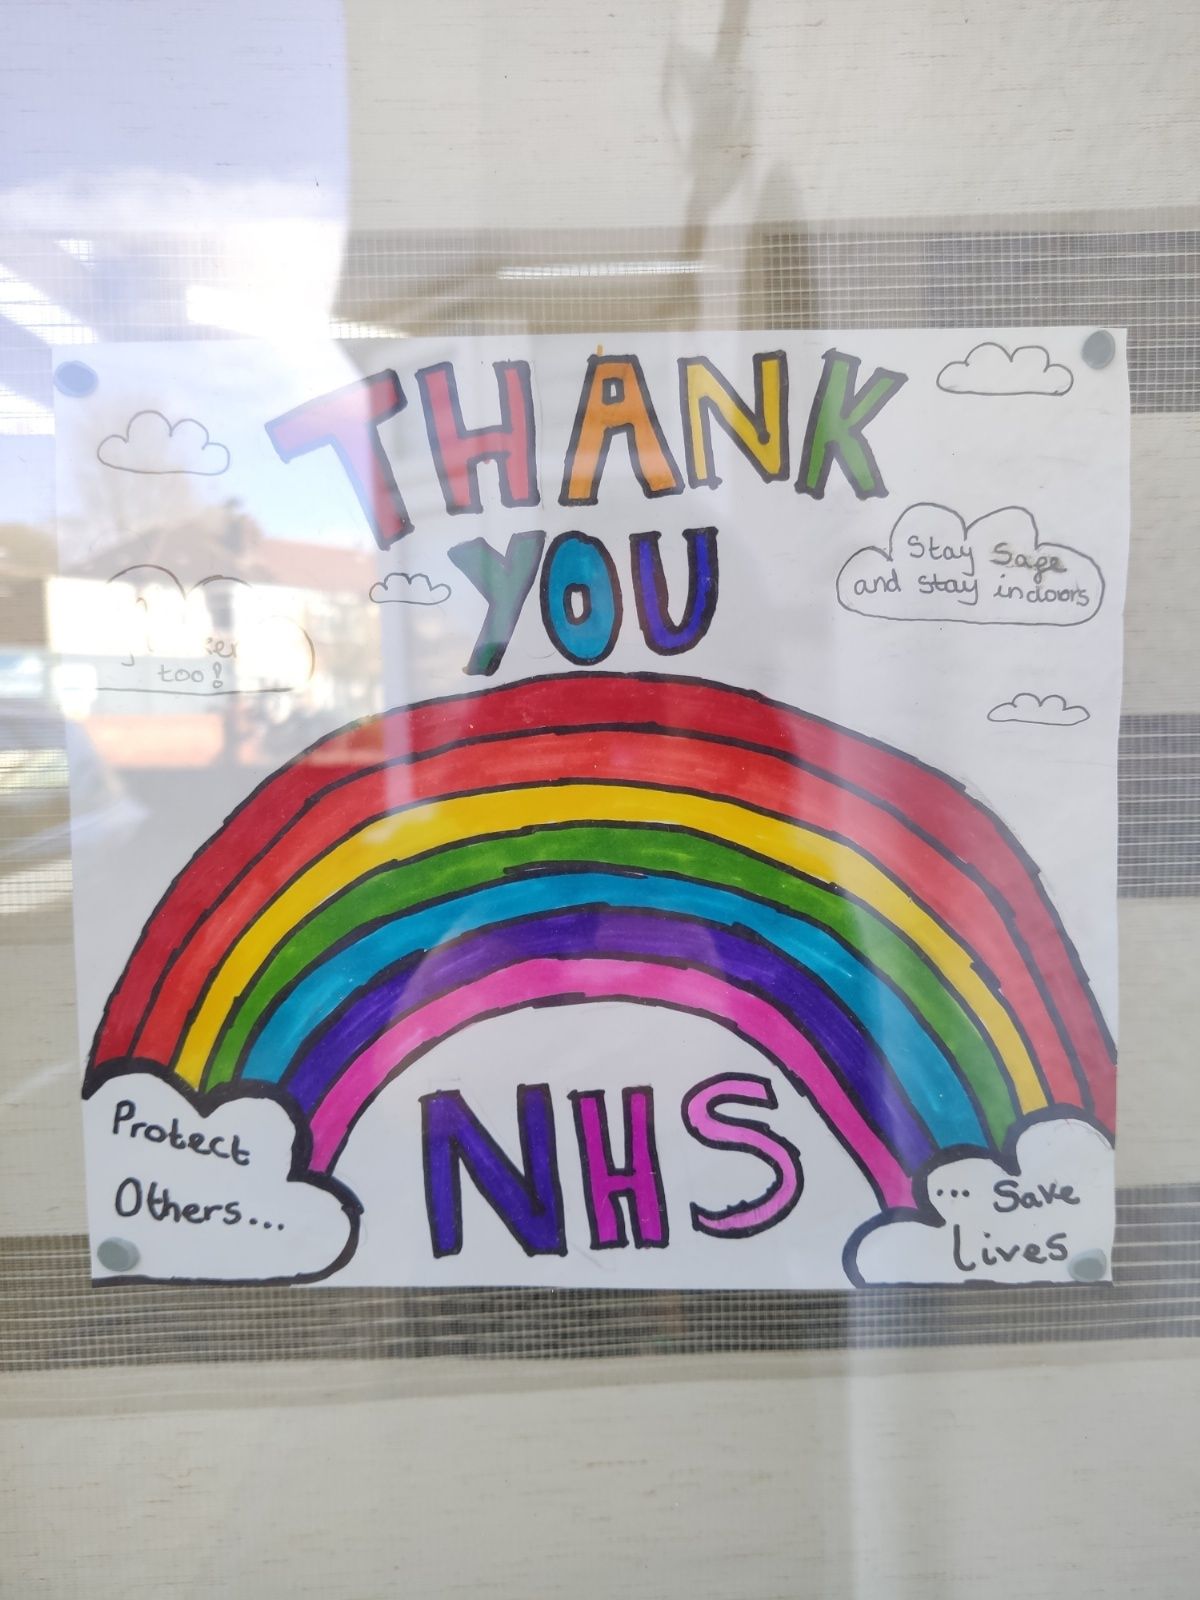 THANK
YOU
Stay Sage
and stay indoors
too!
Protect
Others...
NHS
... Save
Lives